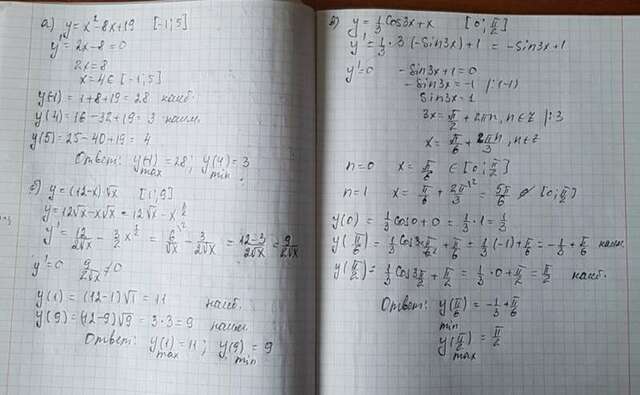 а) y = x² - 8x + 19 [-1; 5]
y' = 2x - 8 = 0
2x = 8
x = 4 ∈ [-1; 5]
y(-1) = 1 + 8 + 19 = 28 наиб.
y(4) = 16 - 32 + 19 = 3 наим.
y(5) = 25 - 40 + 19 = 4
Ответ: y(-1) max = 28, y(4) min = 3
б) y = (12-x)·√x [1; 9]
y = 12√x - x√x = 12√x - x^(3/2)
y' = 12/(2√x) - 3/2 x^(1/2) = 6/√x - 3/(2√x) = (12-3)/(2√x) = 9/(2√x)
y' = 0 9/(2√x) ≠ 0
y(1) = (12-1)√1 = 11 наиб.
y(9) = (12-9)√9 = 3·3 = 9 наим.
Ответ: y(1) max = 11; y(9) min = 9
в) y = 1/3 Cos3x + x [0; π/2]
y' = 1/3 · 3 (-Sin3x) + 1 = -Sin3x + 1
y' = 0 -Sin3x + 1 = 0
-Sin3x = -1 |:(-1)
Sin3x = 1
3x = π/2 + 2πn, n∈Z |:3
x = π/6 + 2πn/3, n∈Z
n=0 x = π/6 ∈ [0; π/2]
n=1 x = π/6 + 2π/3 = 5π/6 ∉ [0; π/2]
y(0) = 1/3 Cos0 + 0 = 1/3 · 1 = 1/3
y(π/6) = 1/3 Cos3π/6 + π/6 = 1/3 (-1) + π/6 = -1/3 + π/6 наим.
y(π/2) = 1/3 Cos3π/2 + π/2 = 1/3 · 0 + π/2 = π/2 наиб.
Ответ: y(π/6) min = -1/3 + π/6
y(π/2) max = π/2